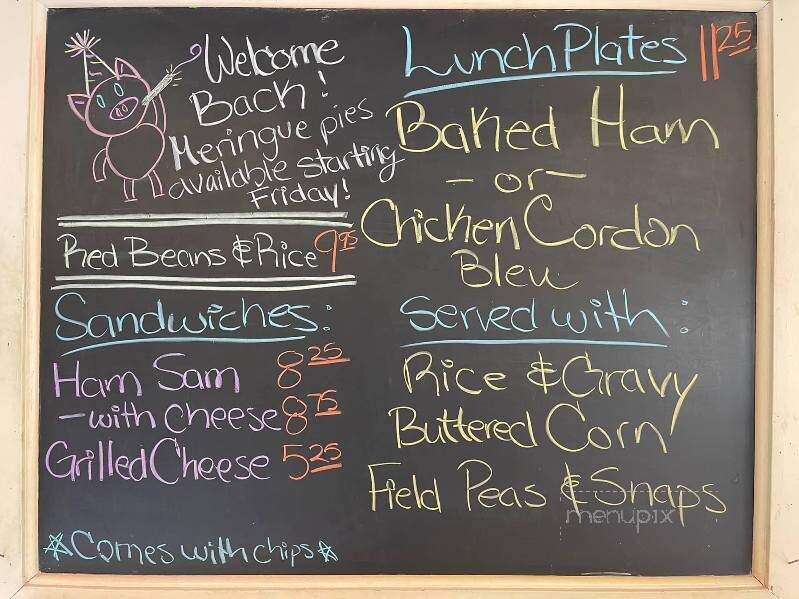 Welcome
Back!
Meringue pies
available starting
Friday!
Red Beans & Rice 9.95
Sandwiches:
Ham Sam 8.25
- with Cheese 8.75
Grilled Cheese 5.25
*Comes with chips*
Lunch Plates 11.25
Baked Ham
- or -
Chicken Cordon
Bleu
Served with:
Rice & Gravy
Buttered Corn
Field Peas & Snaps
menupix